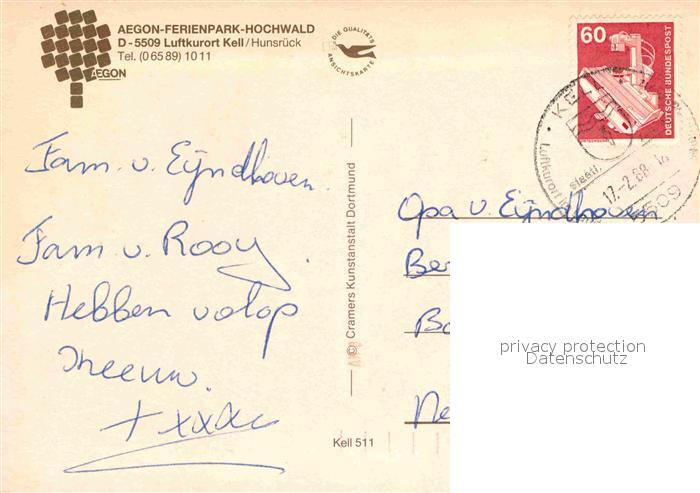 AEGON-FERIENPARK-HOCHWALD
D - 5509 Luftkurort Kell/Hunsrück
Tel. (0 65 89) 10 11
AEGON
DIE QUALITÄTS
ANSICHTSKARTE
60
DEUTSCHE BUNDESPOST
KELL
Luftkurort
staatl.
17.-2.88
5509
Fam. v. Eijndhoven.
Fam v. Rooy.
Hebben volop
sneeuw.
+xxx
© Cramers Kunstanstalt Dortmund
Kell 511
Opa v. Eijndhoven
Be
Bo
Ne
privacy protection
Datenschutz